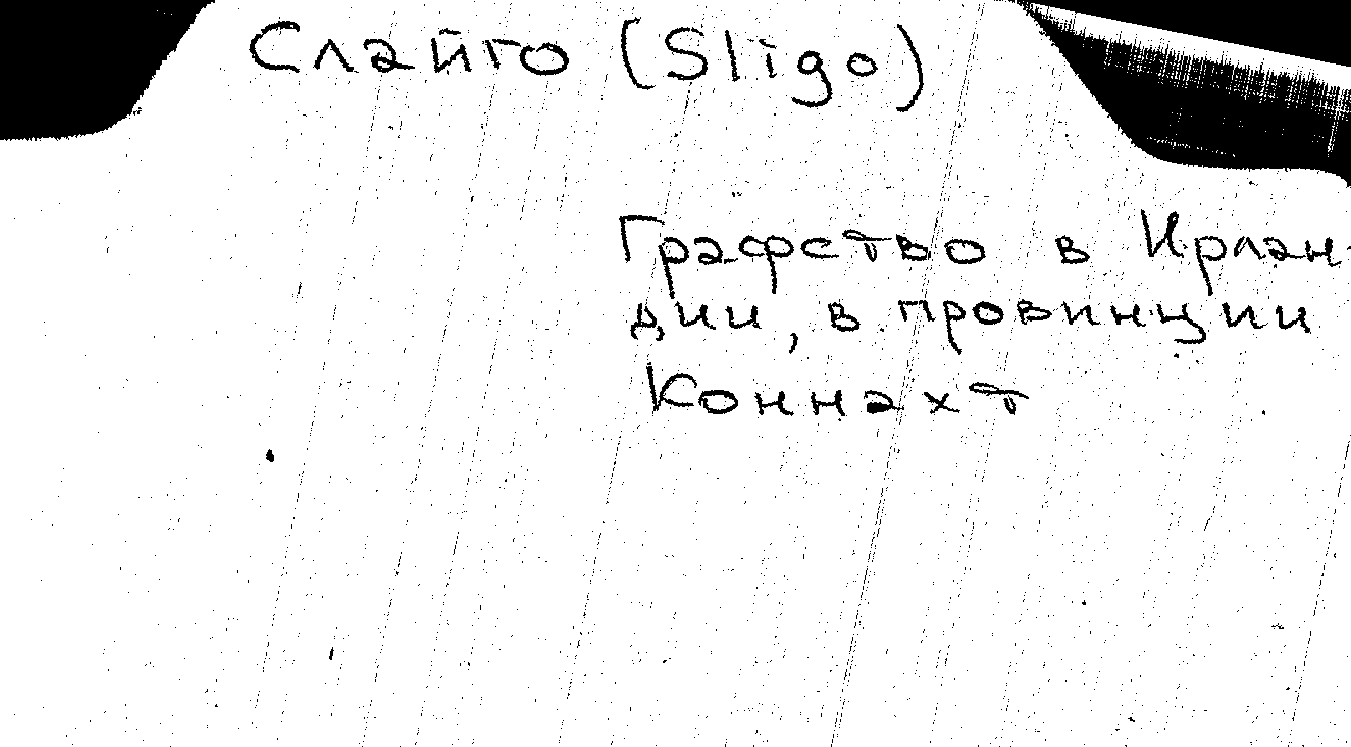 Слайго (Sligo)
Графство в Ирлан-
дии, в провинции
Коннахт